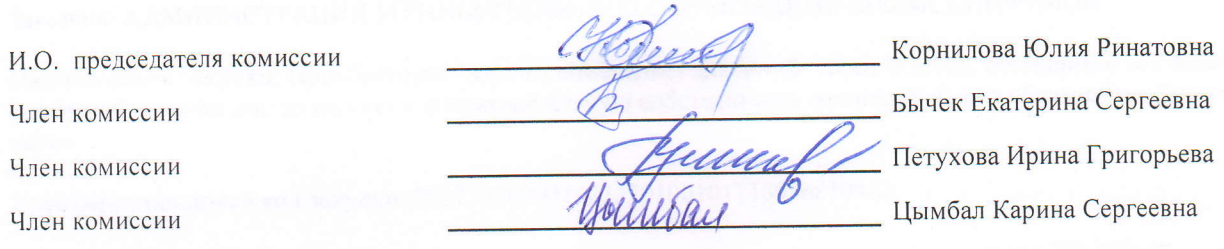 И.О. председателя комиссии Корнилова Юлия Ринатовна
Член комиссии Бычек Екатерина Сергеевна
Член комиссии Петухова Ирина Григорьева
Член комиссии Цымбал Цымбал Карина Сергеевна